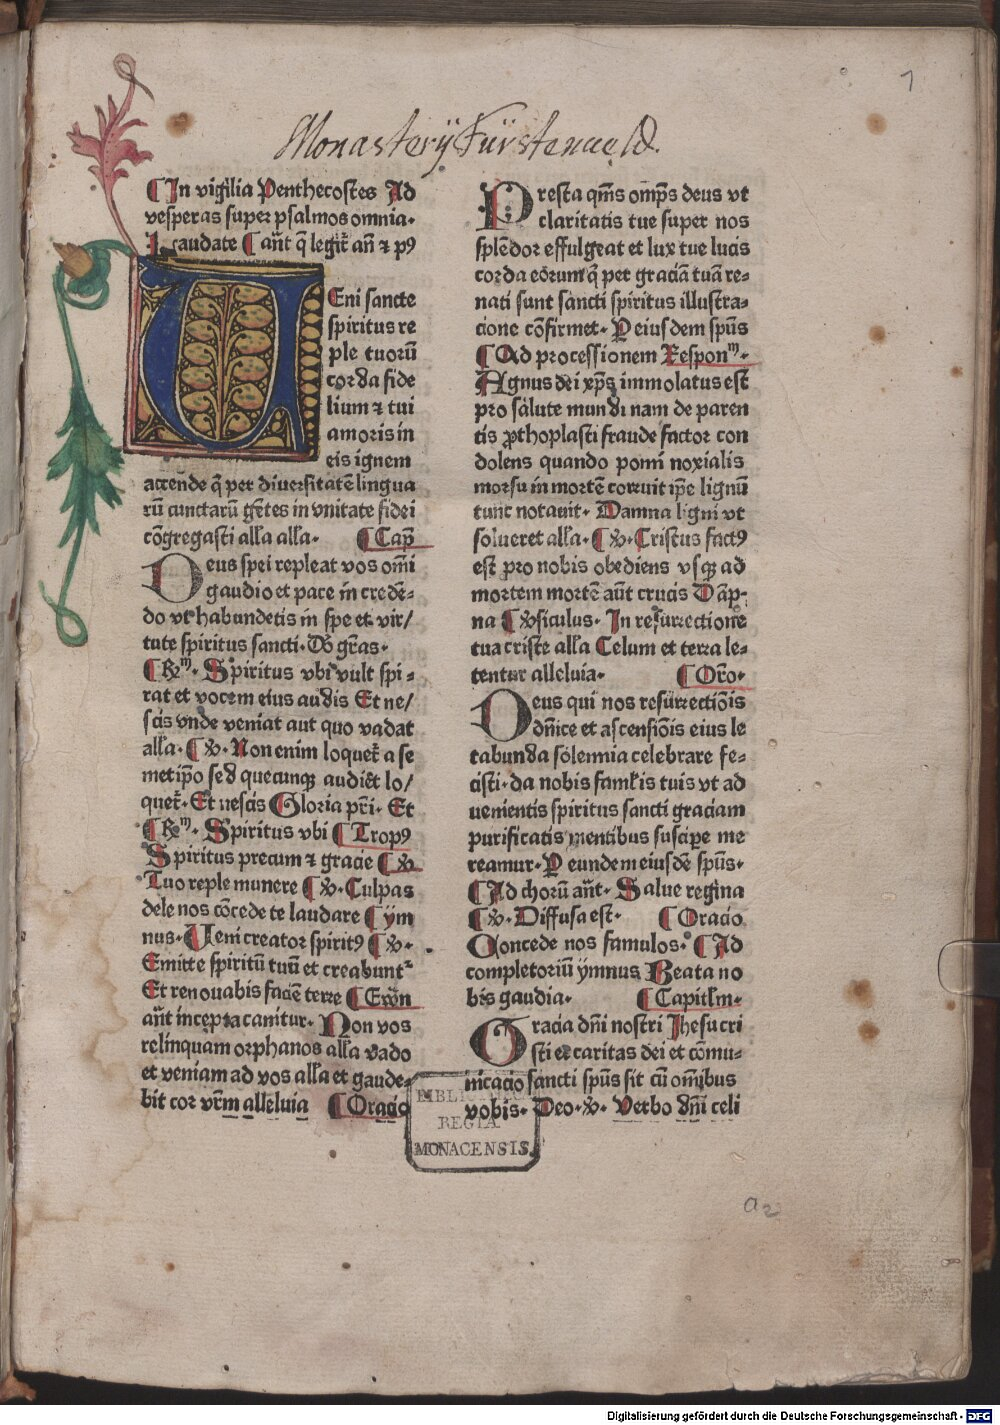 1
Monasterÿ Fürstenueld.
¶In vigilia Penthecostes Ad
vesperas super psalmos omnia·
Laudate ¶Añt q̄ legit᷑ añ ⁊ pꝰ
VEni sancte
spiritus re
ple tuorū
corda fide
lium ⁊ tui
amoris in
eis ignem
accende q̄ per diuersitatē lingua
rū cunctarū gētes in vnitate fidei
cōgregasti alľa alľa· ¶Cap̄
Deus spei repleat vos om̄i
gaudio et pace in credē⸗
do vt habundetis in spe et vir/
tute spiritus sancti· Dō gr̄as·
¶Rᷓm· Spiritus vbi vult spi⸗
rat et vocem eius audis Et ne/
scis vnde veniat aut quo vadat
alľa· ¶℣· Non enim loquet᷑ a se
metip̄o sed quecunqꝫ audiet lo/
quet᷑· Et nescis Gloria pr̄i· Et
¶Rᷓm· Spiritus vbi ¶Tropꝰ
Spiritus precum ⁊ gracie ¶℣
Tuo reple munere ¶℣· Culpas
dele nos cōcede te laudare ¶ym
nus· Ueni creator spiritꝰ ¶℣·
Emitte spiritū tuū et creabunt᷑
Et renouabis faciē terre ¶Ew̄n
añt incepta canitur· Non vos
relinquam orphanos alľa vado
et veniam ad vos alľa et gaude⸗
bit cor vr̄m alleluia ¶Oracio
Presta qm̄s om̄ps deus vt
claritatis tue super nos
splēdor effulgeat et lux tue lucis
corda eorum q̄ per graciā tuā re⸗
nati sunt sancti spiritus illustra⸗
cione cōfirmet· P eiusdem sp̄us
¶Ad processionem Responᵐ·
Agnus dei xp̄s immolatus est
pro salute mundi nam de paren
tis ꝓthoplasti fraude factor con
dolens quando pomi noxialis
morsu in mortē corruit ip̄e lignū
tunc notauit· Damna ligni vt
solueret alľa· ¶℣· Cristus factꝰ
est pro nobis obediens vsqꝫ ad
mortem mortē aūt crucis Dāp⸗
na ¶℣siculus· In resurrectione
tua criste alľa Celum et terra le⸗
tentur alleluia· ¶Or̄o·
Deus qui nos resurrectiōis
dn̄ice et ascensiōis eius le
tabunda solennia celebrare fe⸗
cisti· da nobis famľis tuis vt ad
uenientis spiritus sancti graciam
purificatis mentibus suscipe me
reamur· P eundem eiusdē sp̄us·
¶Ad chorū añt· Salue regina
¶℣· Diffusa est· ¶Oracio
Concede nos famulos· ¶Ad
completoriū ymnus Beata no
bis gaudia· ¶Capitľm·
Gracia dn̄i nostri Jhesu cri
sti et caritas dei et cōmu⸗
nicacio sancti sp̄us sit cū om̄ibus
vobis· Deo·℣· Verbo dn̄i celi
BIBLIOTHECA
REGIA
MONACENSIS.
a2
Digitalisierung gefördert durch die Deutsche Forschungsgemeinschaft - DFG